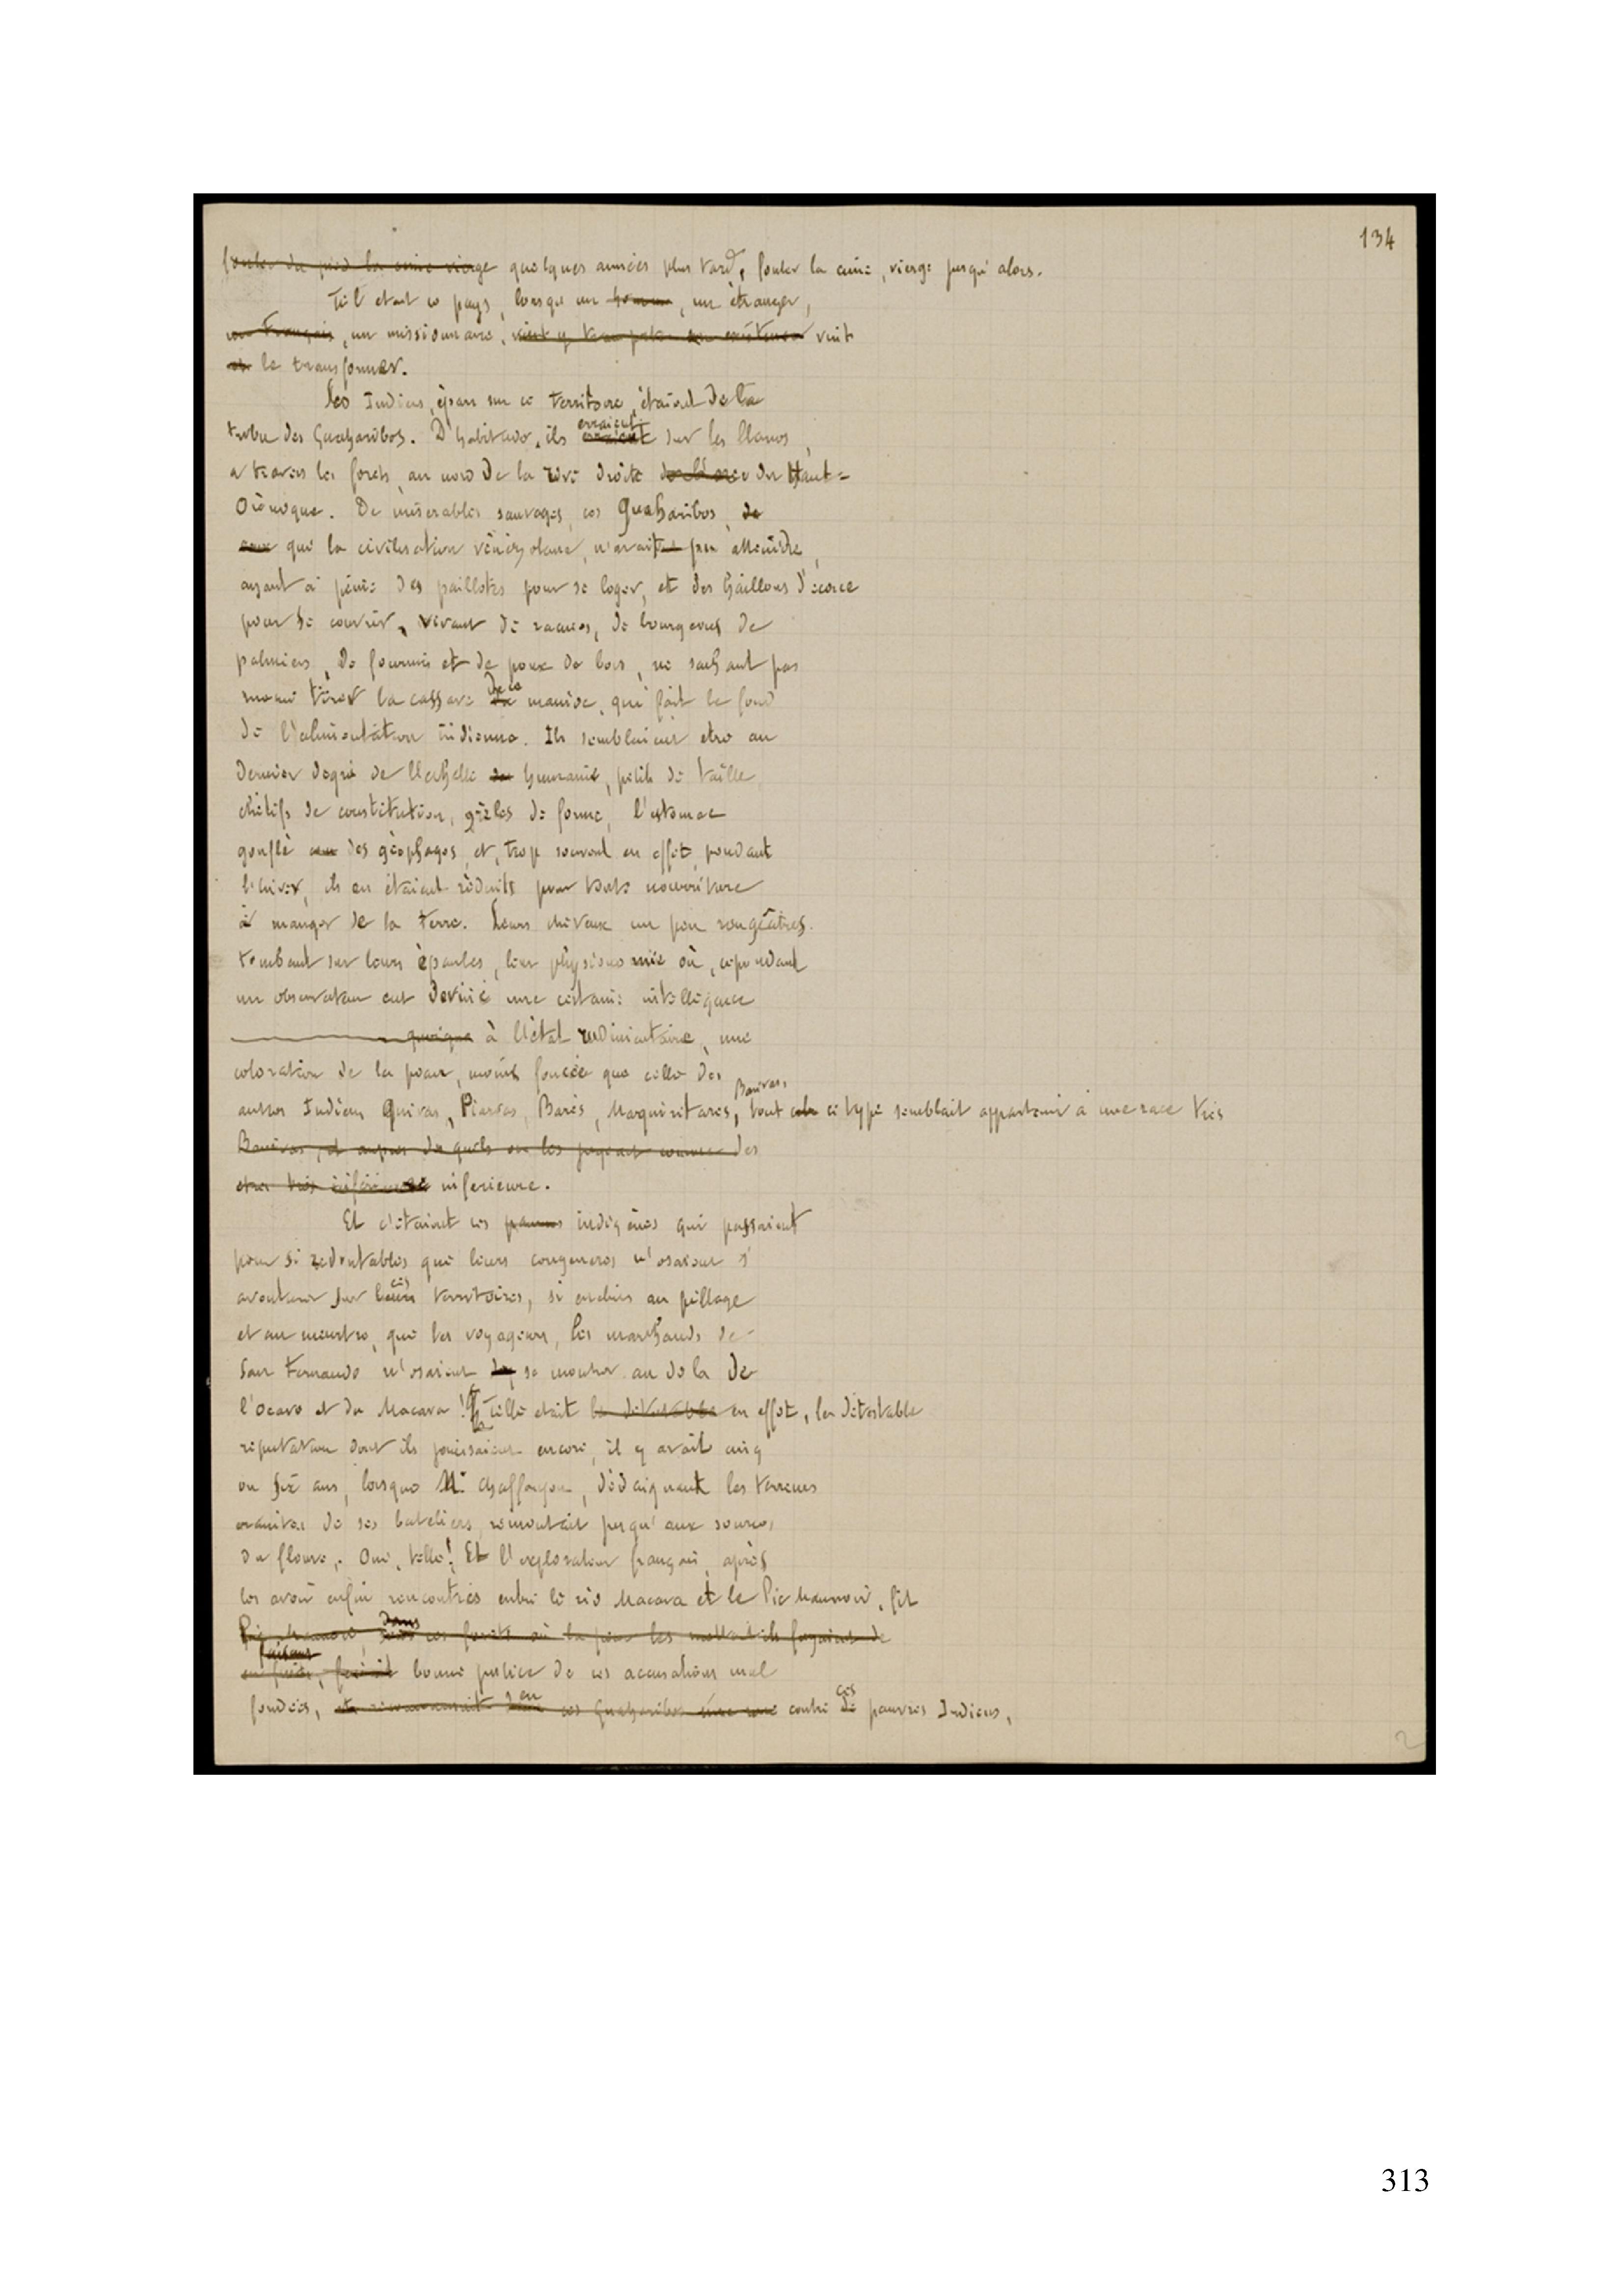 134
fouler du pied la cime vierge quelques années plus tard, fouler la cime, vierge jusqu'alors.
Tel était ce pays, lorsque un homme, un étranger,
un Français, un missionnaire, vint
le transformer.
Les Indiens, épars sur ce territoire, étaient de la
tribu des Guaharibos. D'habitude, ils erraient sur les llanos,
à travers les forêts, au nord de la rive droite du Haut-
Orénoque. De misérables sauvages, ces Guaharibos, de
ceux que la civilisation vénézolane, n'avait pu atteindre,
ayant à peine des paillotes pour se loger, et des haillons d'écorce
pour se couvrir, vivant de racines, de bourgeons de
palmiers, de fourmis et de poux de bois, ne sachant pas
même tirer la cassave de ce manioc, qui fait le fond
de l'alimentation indienne. Ils semblaient etre au
dernier degré de l'échelle humaine, petits de taille,
chétifs de constitution, grêles de forme, l'estomac
gonflé des géophages, et, trop souvent en effet, pendant
l'hiver, ils en étaient réduits pour toute nourriture
à manger de la terre. Leurs cheveux un peu rougeâtres
tombant sur leurs épaules, leur physionomie où, cependant
un observateur eut deviné une certaine intelligence
à l'état rudimentaire, une
coloration de la peau, moins foncée que celle des
Banivas,
autres Indiens Quivas, Piaroas, Barés, Mariquiritares, tout ce type semblait appartenir à une race très
Banivas, et auprès desquels on les jugeait comme des
etres très inférieurs inferieure.
Et c'étaient ces pauvres indigènes qui passaient
pour si redoutables que leurs congeneres n'osaient s'
aventurer sur ces territoires, si enclins au pillage
et au meurtre, que les voyageurs, les marchands de
San Fernando n'osaient se montrer au dela de
l'Ocamo et du Mavaca! Telle etait la détestable en effet, la détestable
reputation dont ils jouissaient encore, il y avait cinq
ou six ans, lorsque M. Chaffanjon, dédaignant les terreurs
de ses bateliers, remontait jusqu'aux sources
du fleuve. Oui, telle! Et l'explorateur français, après
les avoir enfin rencontrés entre le rio Mavaca et le Pic Maunoir, fit
Pic Maunoir, dans ces forêts où la peur les
faisant
bonne justice de ces accusations mal
fondées, contre ces pauvres Indiens,
2
313